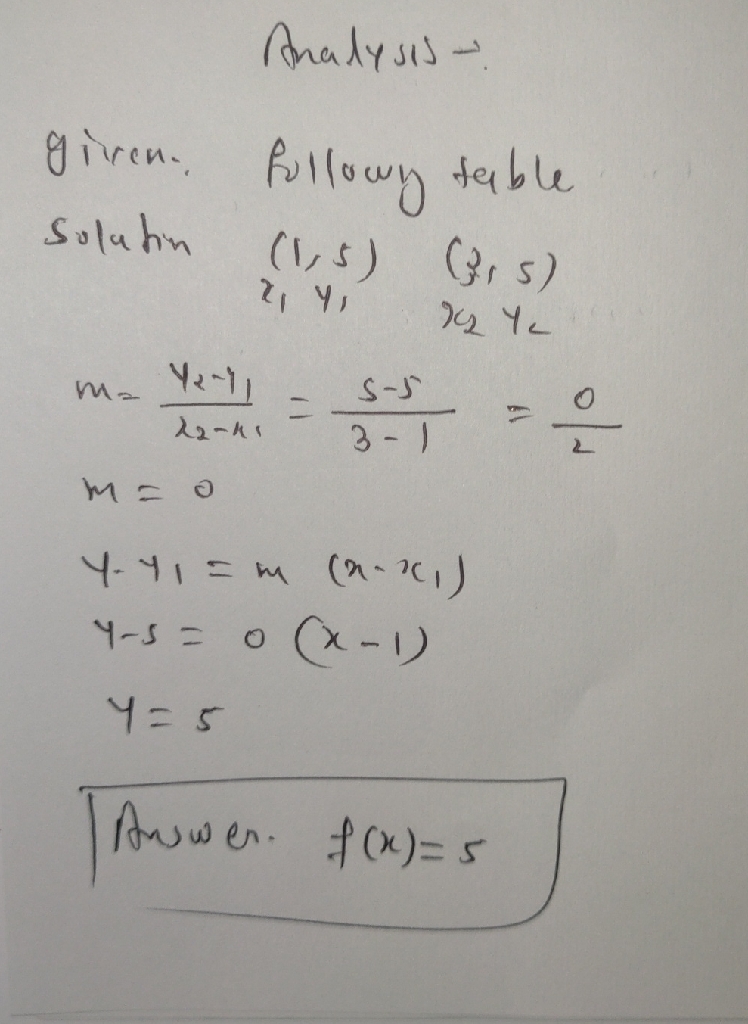 Analysis →
given. following table
Solution (1, 5) (3, 5)
x1 y1 x2 y2
m = y2-y1 / x2-x1 = 5-5 / 3-1 = 0 / 2
m = 0
y-y1 = m (x-x1)
y-5 = 0 (x-1)
y = 5
Answer. f(x) = 5